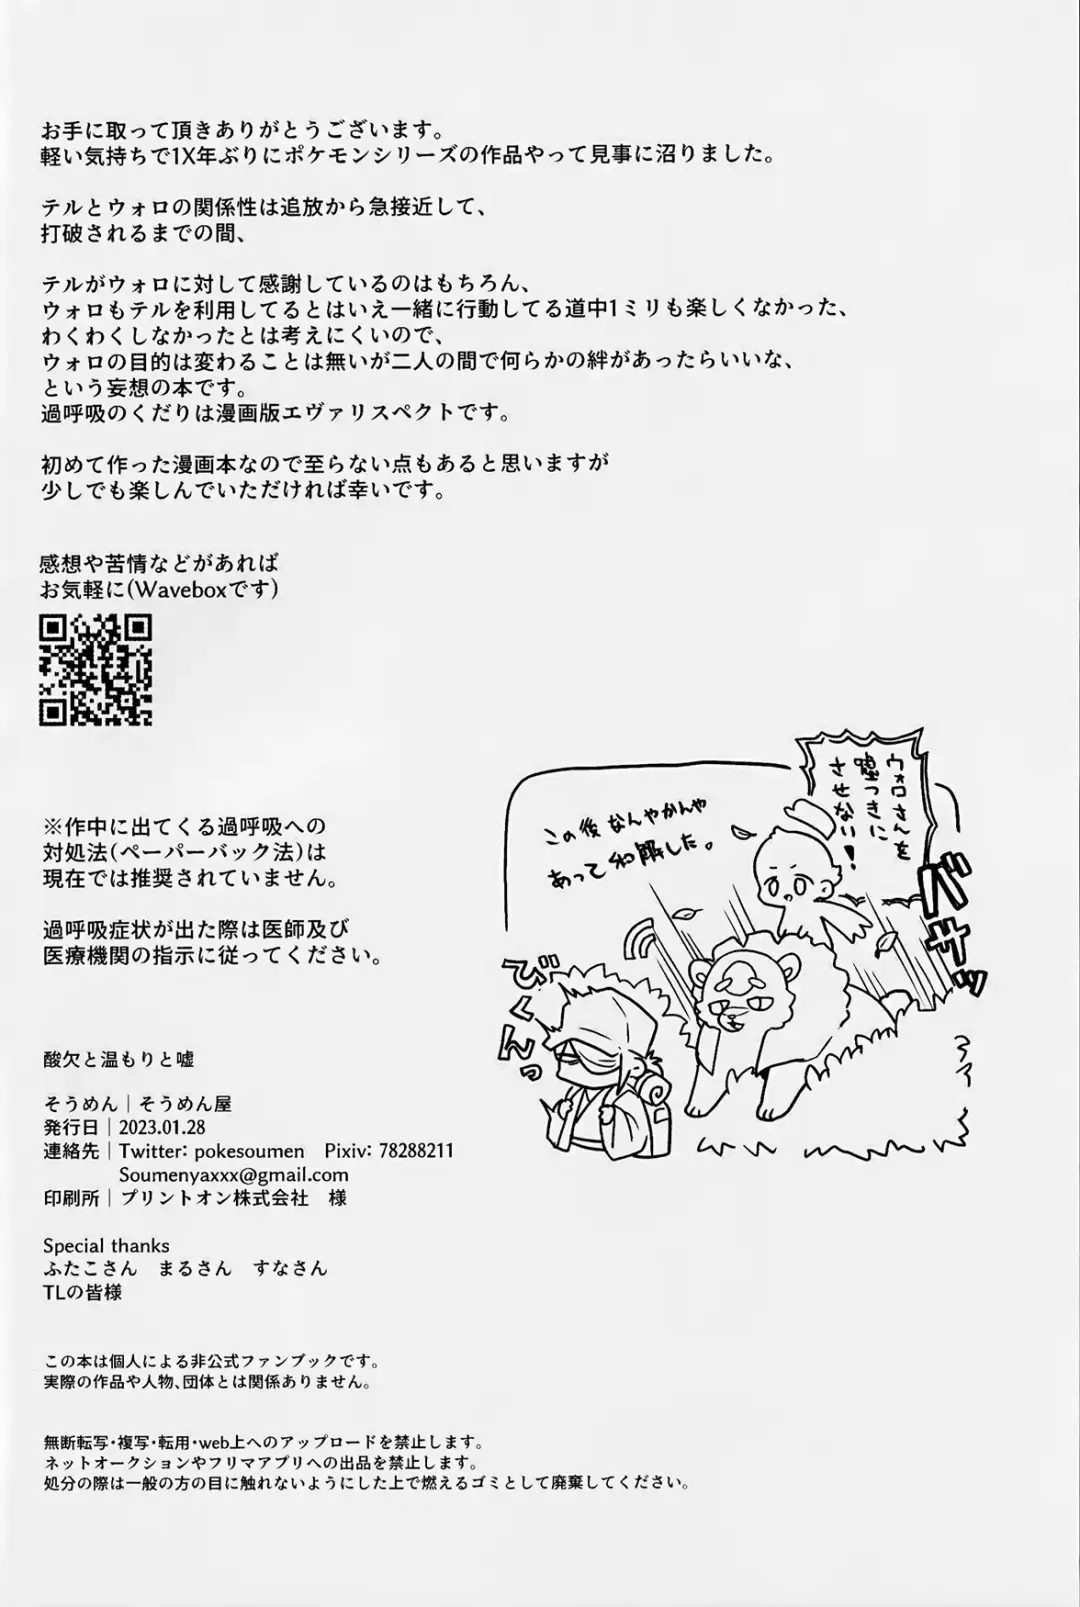 お手に取って頂きありがとうございます。
軽い気持ちで1X年ぶりにポケモンシリーズの作品やって見事に沼りました。
テルとウォロの関係性は追放から急接近して、
打破されるまでの間、
テルがウォロに対して感謝しているのはもちろん、
ウォロもテルを利用してるとはいえ一緒に行動してる道中1ミリも楽しくなかった、
わくわくしなかったとは考えにくいので、
ウォロの目的は変わることは無いが二人の間で何らかの絆があったらいいな、
という妄想の本です。
過呼吸のくだりは漫画版エヴァリスペクトです。
初めて作った漫画本なので至らない点もあると思いますが
少しでも楽しんでいただければ幸いです。
感想や苦情などがあれば
お気軽に(Waveboxです)
ウォロさんを
嘘つきに
させない!
この後なんやかんや
あって和解した。
バサッ
びくぅんっ
※作中に出てくる過呼吸への
対処法(ペーパーバック法)は
現在では推奨されていません。
過呼吸症状が出た際は医師及び
医療機関の指示に従ってください。
酸欠と温もりと嘘
そうめん｜そうめん屋
発行日｜2023.01.28
連絡先｜Twitter: pokesoumen　Pixiv: 78288211
Soumenyaxxx@gmail.com
印刷所｜プリントオン株式会社　様
Special thanks
ふたこさん　まるさん　すなさん
TLの皆様
この本は個人による非公式ファンブックです。
実際の作品や人物、団体とは関係ありません。
無断転写・複写・転用・web上へのアップロードを禁止します。
ネットオークションやフリマアプリへの出品を禁止します。
処分の際は一般の方の目に触れないようにした上で燃えるゴミとして廃棄してください。